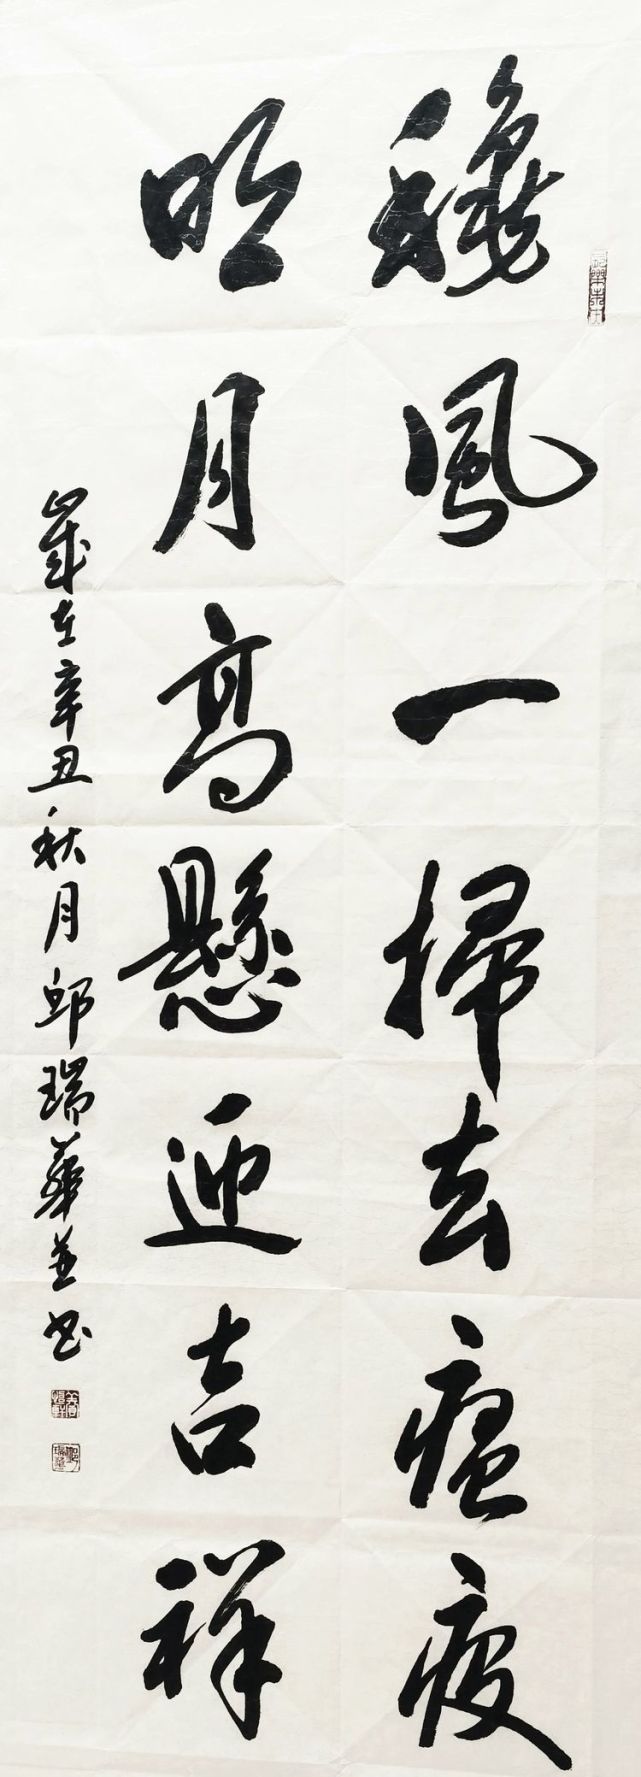 穐風一掃去瘟疫
明月高懸迎吉祥
歲在辛丑秋月邱瑞華並书